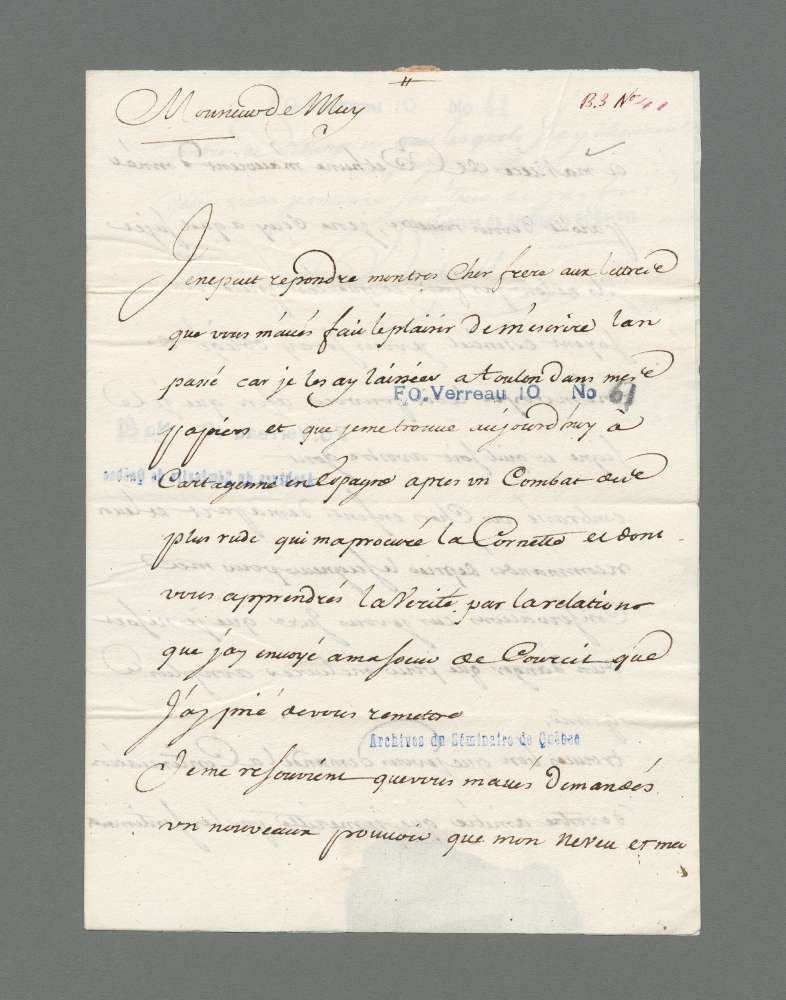 Monsieur de Muy
B.3 No
Je ne puit repondre mon tres Cher frere aux lettre
que vous m'aués fait le plaisir de m'escrire l'an
passé car je les ay laissées a Toulon dans mes
F.O. Verreau 10 No 61
papiers et que je me trouue aujourd'huy a
Cartagenne en Espagne apres vn Combat des
Archives du Séminaire de Québec
plus rude qui m'a procuré la Cornette et dont
vous apprendrés la Verité par la relation
que j'ay enuoyé a ma soeur de Courcit que
J'ay prié de vous remettre
Archives du Séminaire de Québec
Je me resouvient que vous m'aués demandés
vn nouveaux pouuoir que mon Neveu et ma